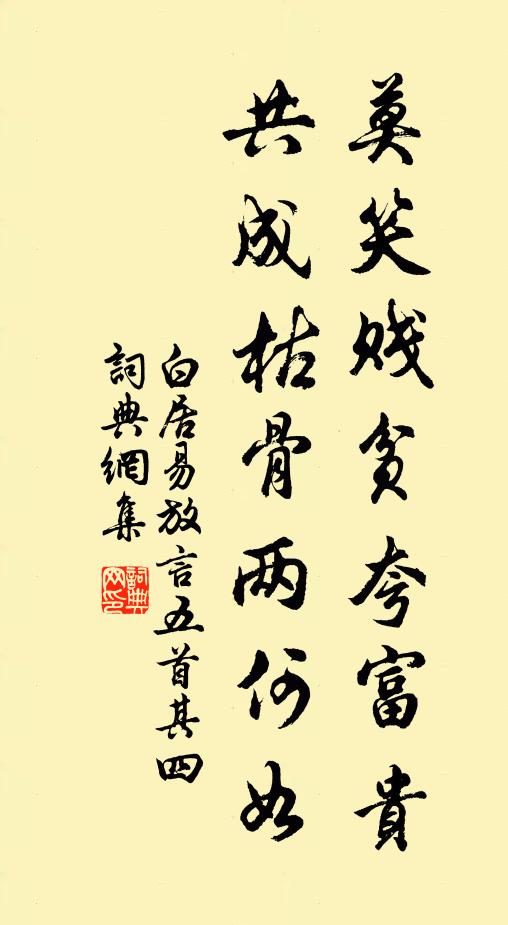 莫笑贱貧夸富貴
共成枯骨两何如
白居易放言五首其四
詞典網集
詞典网印